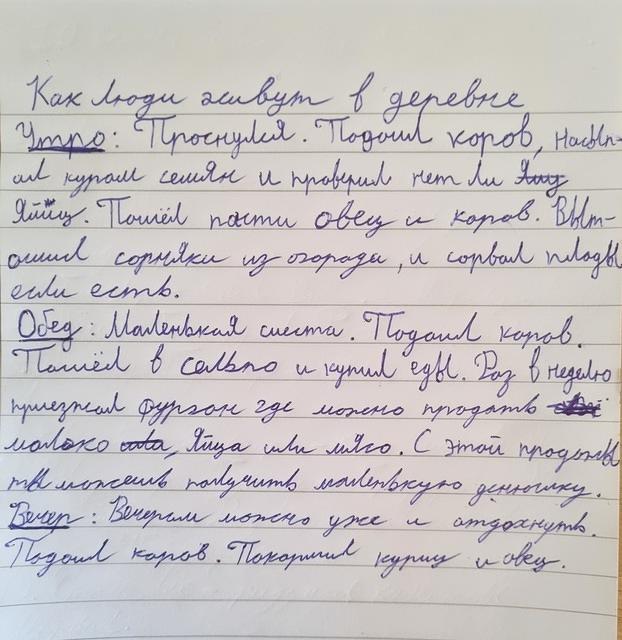 Как люди живут в деревне
Утро: Проснулся. Подоил коров, насып-
ал курам семян и проверил нет ли
яйиц. Пошёл пасти овец и коров. Выт-
ошил сорняки из огорода, и сорвал плоды
если есть.
Обед: Маленькая сиеста. Подоил коров.
Пошёл в сельпо и купил еды. Раз в неделю
приезжал фургон где можно продать
молоко, яйца или мясо. С этой продажы
ты можешь получить маленькую денюшку.
Вечер: Вечером можно уже и отдохнуть.
Подоил коров. Покормил куриц и овец.